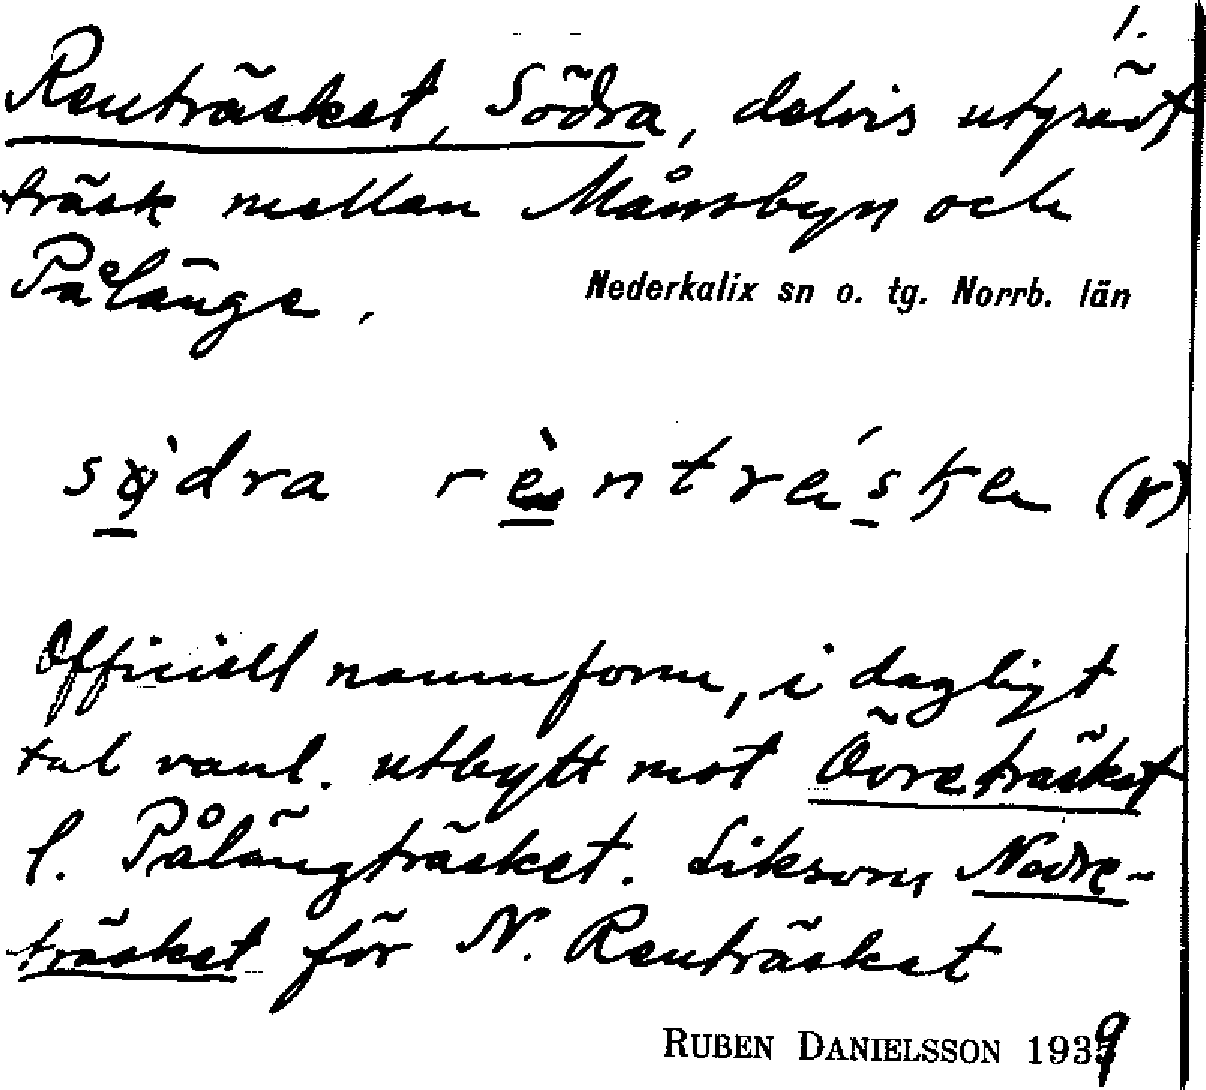 1.
Renträsket, Södra, delvis utgrävt
träsk mellan Månsbyn och
Pålänge.
Nederkalix sn o. tg. Norrb. län
södra
Officiell namnform, i dagligt
tal vanl. utbytt mot Övreträsket
l. Pålängträsket. Liksom Nedre-
träsket för N. Renträsket
RUBEN DANIELSSON 1939